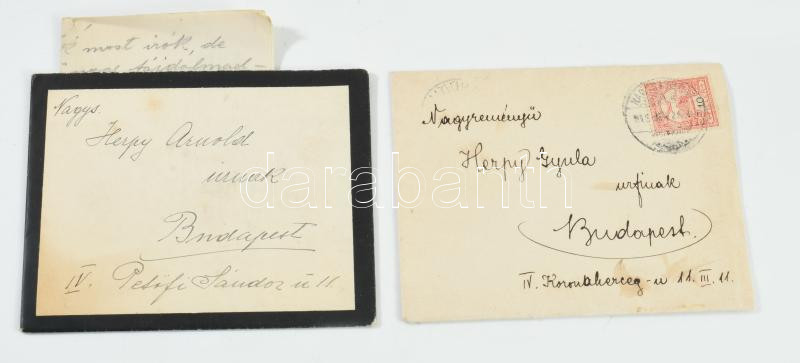 most irók, de
Nagys.
Herpy Arnold
urnak
Budapest
IV. Petőfi Sándor u 11.
Nagyreményű
Herpy Gyula
urfinak
Budapest.
IV. Koronaherceg-u 11. III. 11.
darabanth